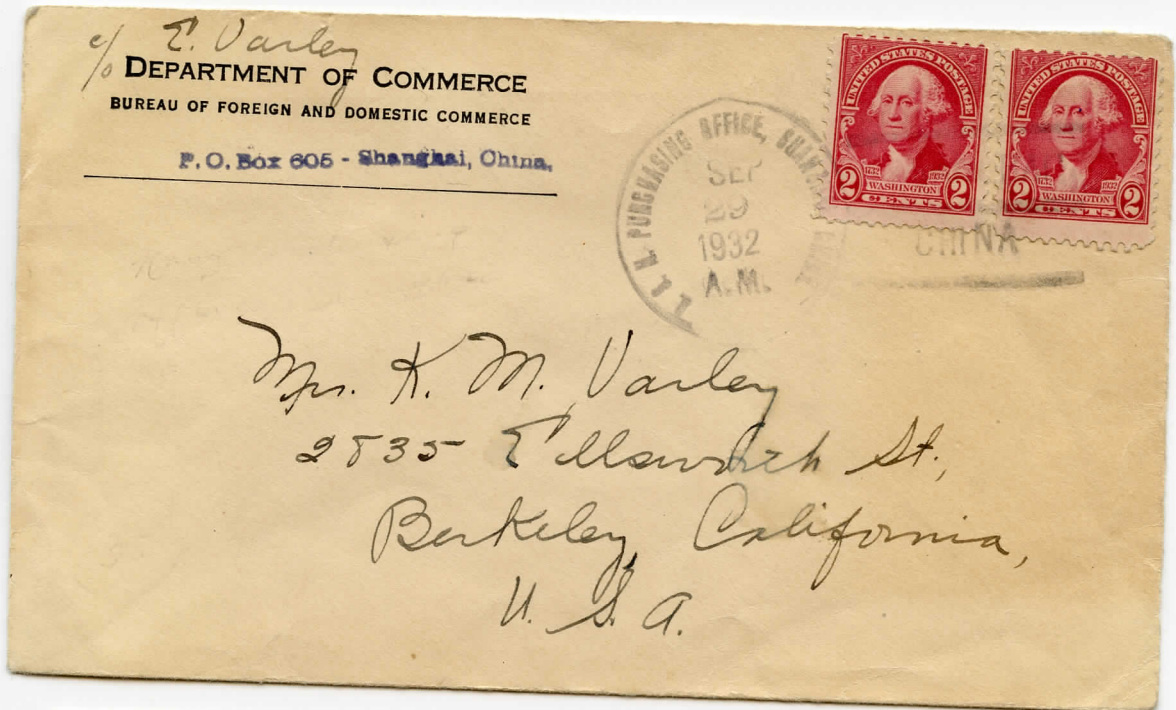 c/o E. Varley
DEPARTMENT OF COMMERCE
BUREAU OF FOREIGN AND DOMESTIC COMMERCE
P.O. Box 605 - Shanghai, China.
PURCHASING OFFICE,
SEP
29
1932
A.M.
CHINA
UNITED STATES POSTAGE
1732 1932
2 WASHINGTON 2
CENTS
UNITED STATES POSTAGE
1732 1932
2 WASHINGTON 2
CENTS
Mrs. K. M. Varley
2835 Ellsworth St.,
Berkeley, California,
U. S. A.